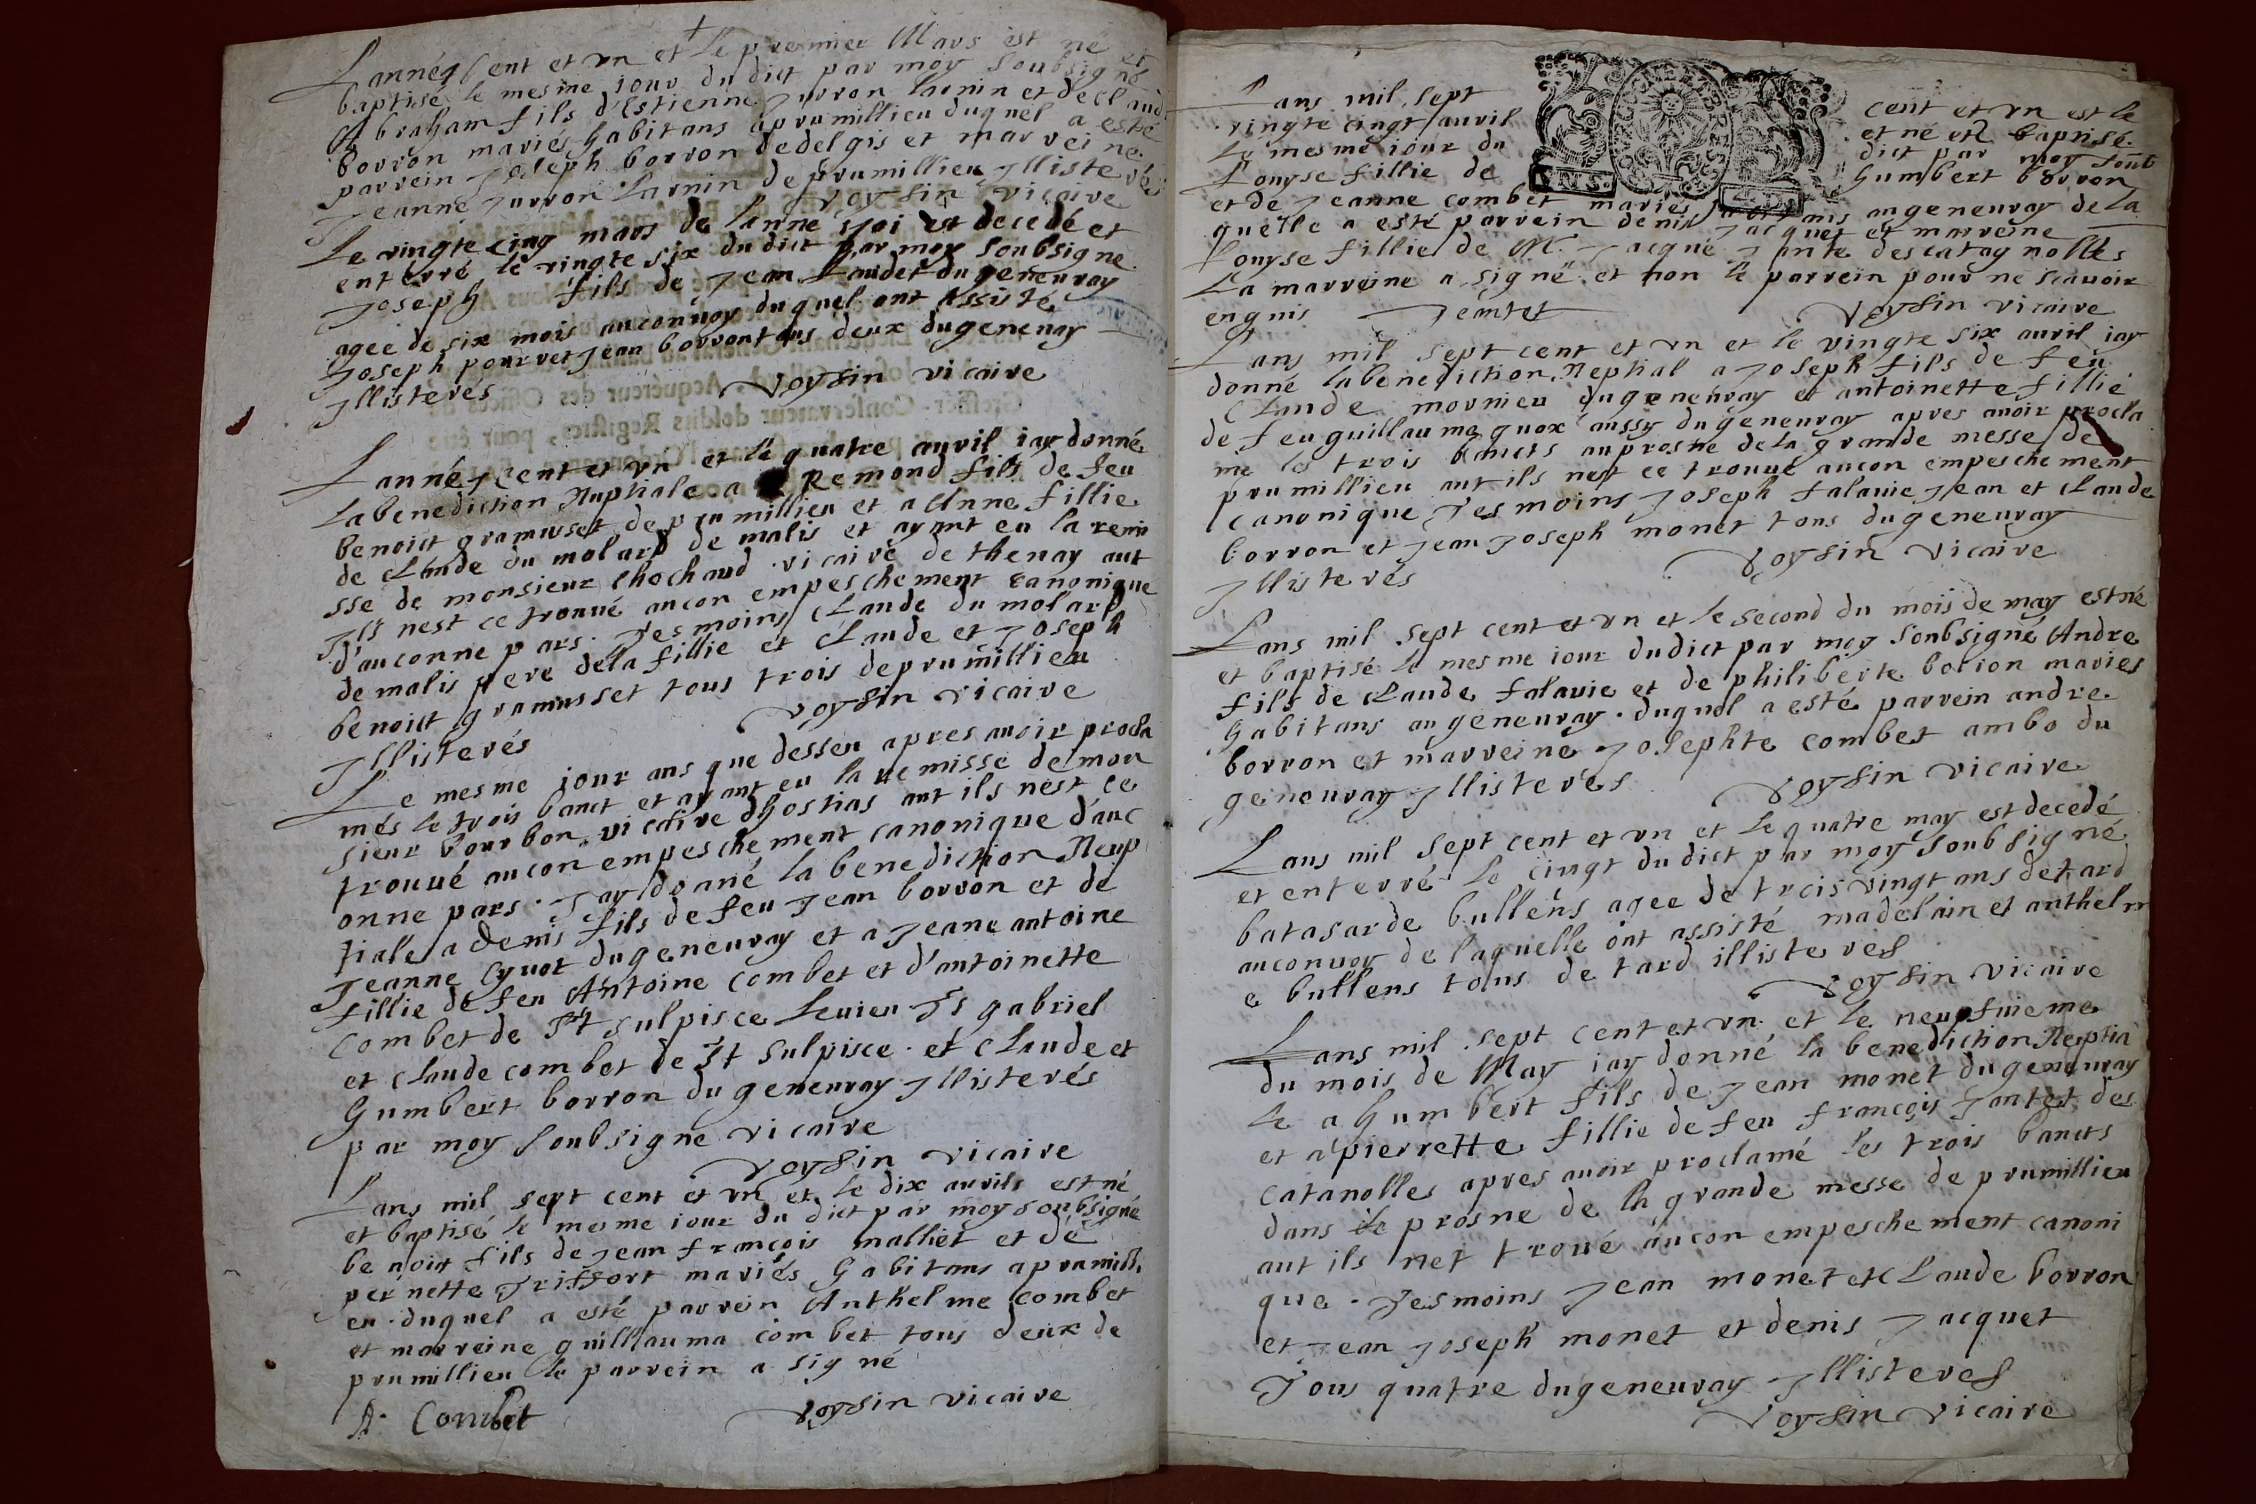 Lannéq Cent et vn et le premier Mars est né et
baptisé le mesme iour du dict par moy soubsigné
Abraham fils d'Estienne Jurron Larnin et de Claud
borron mariés habitans a prumillieu duquel a esté
parrein Joseph borron de delgis et marreine
Jeanne Jurron Larnin de prumillieu Jllisterés
Voysin vicaire
Le vingte cinq mars de lanne 1701 est decedé et
enterré le vingte six du dict par moy soubsigne
Joseph fils de Jean Laudet du geneuray
agee de six mois au conuoy duquel ont assisté
Joseph pourret Jean borron tous deux du geneuray
Jllisterés Voysin vicaire
Lanné 7 cent et vn et le quatre auril iay donné
La benediction Nuptiale a Remond fils de feu
benoict gramusset de prumillieu et a Anne fillie
de Claude du molard de malis et aymt eu la remi
sse de monsieur Chochaud vicaire de thenay aut
Jls nest ce trouué aucon empeschement canonique
d'auconne pars. Tesmoins Claude du molard
de malis pere dela fillie et Claude et Joseph
benoict gramusset tous trois de prumillieu
Jllisterés Voysin vicaire
Le mesme iour ans que desseu apres auoir procla
més le trois banct et ayant eu la remisse de mon
sieur bourbon vicaire dhostias aut ils nest ce
trouué aucon empeschement canonique d'auc
onne pars. Jay donné la benediction Neup
tiale a denis fils de feu Jean borron et de
Jeanne Cyuot du geneuray et a Jeane antoine
fillie de feu Antoine Combet et d'antoinette
Combet de St Sulpisce Leuieu Ts gabriel
et Claude combet de St Sulpisce. et Claude et
humbert borron du geneuray Jllisterés
par moy soubsigne vicaire
Voysin vicaire
Lans mil sept cent et vn et le dix aurils est né
et baptisé le mesme iour du dict par moy soubsigné
benoict fils de Jean françois malliet et dé
pernette Triffort mariés habitans a prumilli
eu. duquel a esté parrein Anthelme Combet
et marreine guillauma combet tous deux de
prumillieu le parrein a signé
A. Combet Voysin vicaire
Lans mil sept cent et vn est le
vingte cingt auril et né et baptisé
le mesme iour du dict par moy soub
Louyse fillie de humbert borron
et de Jeanne combet mariés habitans au geneuray de la
quelle a esté parrein denis Jacquet et marreine
Louyse fillie de Mr. Jacque Jantet des catagnolles
La marreine a signé et non le parrein pour ne scauoir
enquis Jemtet Voysin vicaire
Lans mil sept cent et vn et le vingte six auril iay
donné la benediction Neptial a Joseph fils de feu
Claude mornieu du geneuray et antoinette fillie
de feu guillaume quox aussy du geneuray apres auoir procla
mé les trois bancts au prosne de la grande messe de
prumillieu aut ils nest ce trouué aucon empeschement
canonique Tesmoins Joseph falauie Jean et Claude
borron et Jean Joseph monet tous du geneuray
Jllisterés Voysin vicaire
Lans mil sept cent et vn et le second du mois de may est né
et baptisé le mesme iour dudict par moy soubsigné Andre
fils de Claude falauie et de philiberte borion maries
habitans au geneuray. duquel a esté parrein andre
borron et marreine Josephte combet ambo du
geneuray Jllisterés Voysin vicaire
Lans mil sept cent et vn et le quatre may est decedé
et enterré le cingt du dict par moy soubsigné
batasarde bullens agee de trois vingt ans de tard
au conuoy de laquelle ont assisté madelain et anthelm
e bullens tous de tard illisterés
Voysin vicaire
Lans mil sept cent et vn et le neufuieme
du mois de May iay donné la benediction Neptia
le a humbert fils de Jean monet du geneuray
et a pierrette fillie de feu françois Jantet des
catanolles apres auoir proclamé les trois bancts
dans le prosne de la grande messe de prumillieu
aut ils net troué aucon empeschement canoni
que. Tesmoins Jean monet et Claude borron
et Jean Joseph monet et denis Jacquet
Tous quatre du geneuray Jllisterés
Voysin vicaire